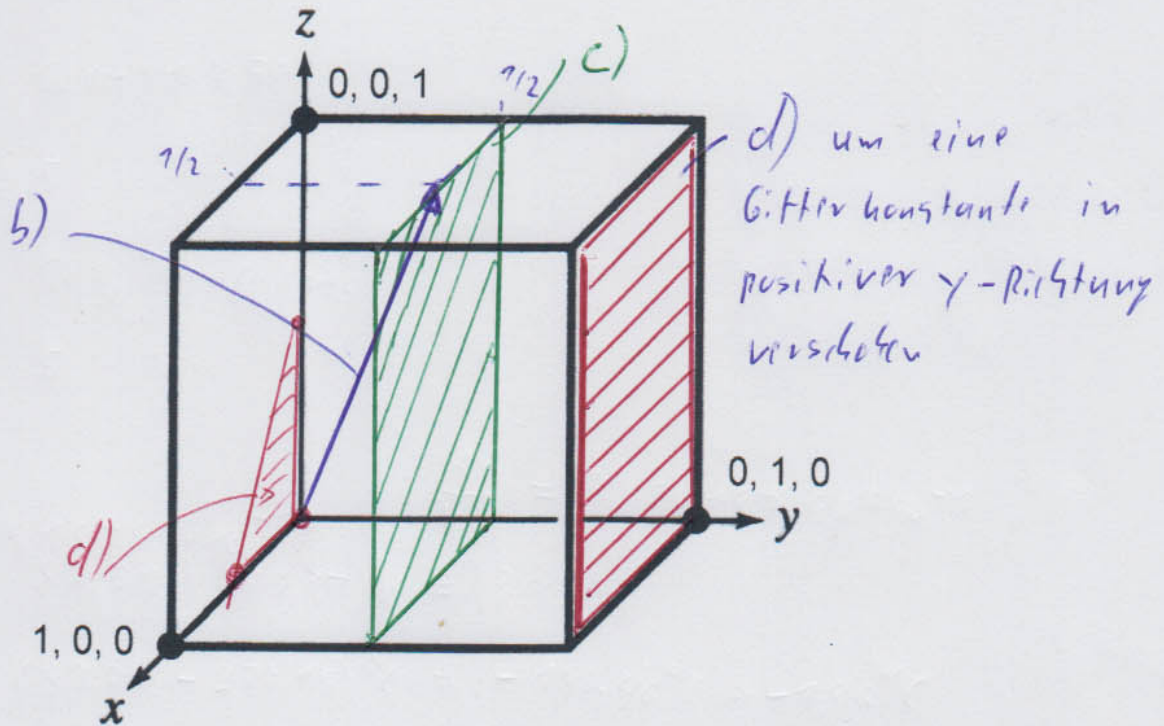 z
c)
0, 0, 1
1/2
1/2
d) um eine
Gitterkonstante in
positiver y-Richtung
verschoben
b)
0, 1, 0
y
d)
1, 0, 0
x